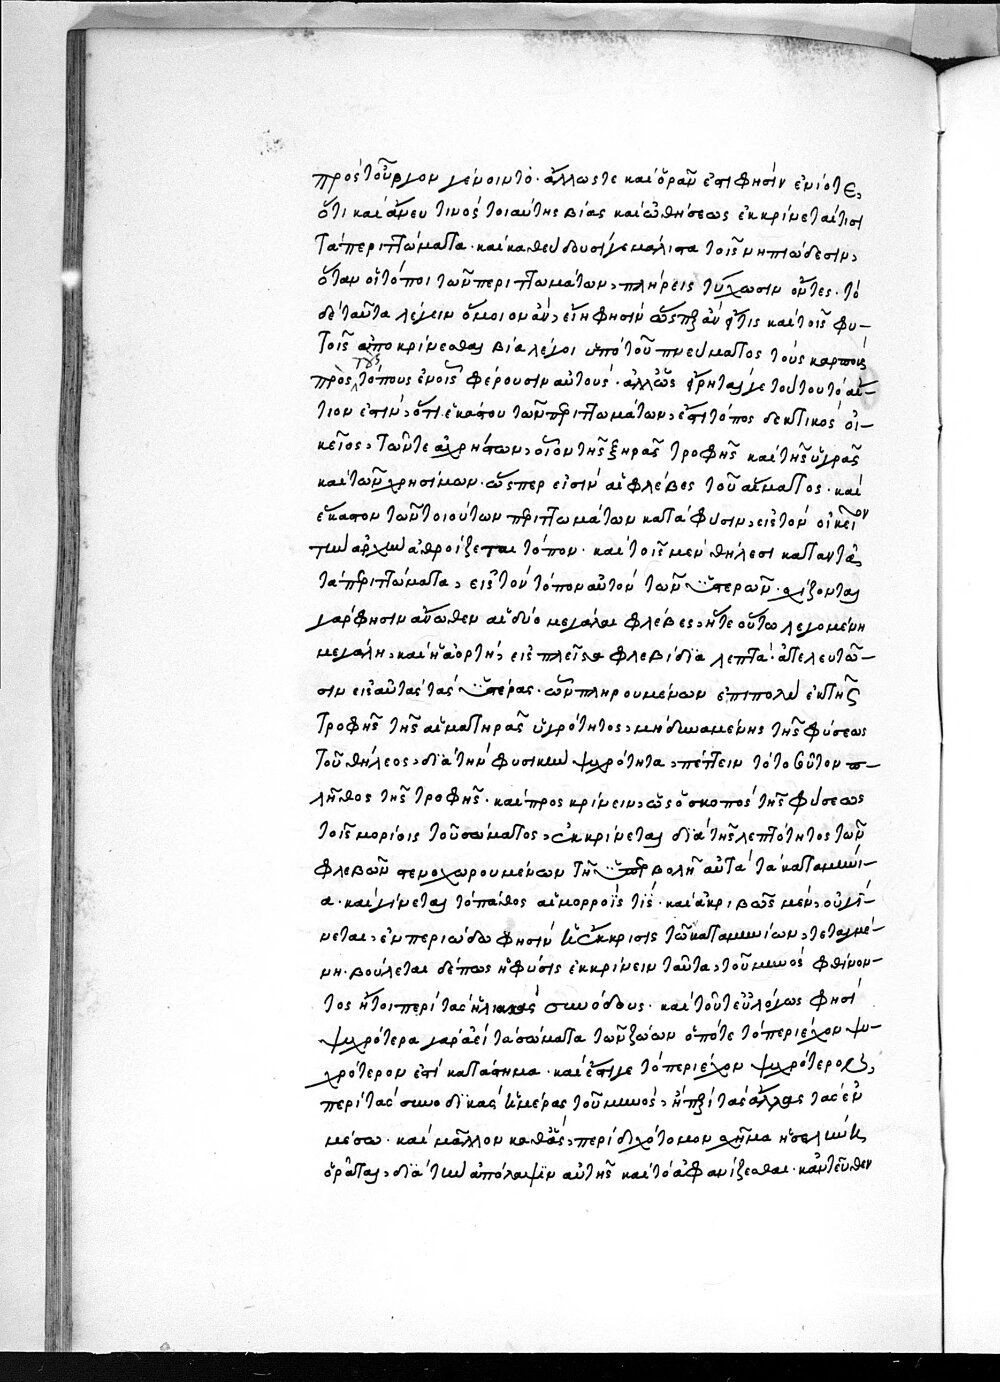 πρὸς τοὖργον γένοιντο. ἄλλωστε καὶ ὁρᾶν ἐστι φησὶν ἐνίοτε,
ὅτι καὶ ἄνευ τινὸς τοιαύτης βίας καὶ ὠθήσεως ἐκκρίνεταί τισι
τὰ περιττώματα. καὶ καθεύδουσί γε μάλιστα τοῖς νηπιώδεσιν,
ὅταν οἱ τόποι τῶν περιττωμάτων, πλήρεις τύχωσιν ὄντες. τὸ
δὲ ταῦτα λέγειν ὅμοιον ἂν, εἴη φησὶν ὥσπερ ἂν εἴ τις καὶ τοῖς φυ-
τοῖς ἀποκρίνεσθαι βία λέγοι ὑπὸ τοῦ πνεύματος τοὺς καρποὺς
πρὸς τοὺς τόπους ἐν οἷς φέρουσιν αὐτούς. ἀλλ' ὡς εἴρηται γε τούτου τὸ αἴ-
τιον ἐστὶν, ὅτι ἑκάστου τῶν περιττωμάτων, ἐστὶ τόπος δεκτικὸς οἰ-
κεῖος, τῶν τε ἀχρήστων, οἷον τῆς ξηρᾶς τροφῆς καὶ τῆς ὑγρᾶς
καὶ τῶν χρησίμων. ὥσπερ εἰσὶν αἱ φλέβες τοῦ αἵματος. καὶ
ἕκαστον τῶν τοιούτων περιττωμάτων κατὰ φύσιν, εἰς τὸν οἰκεῖον
τὴν ἀρχὴν ἀθροίζεται τόπον. καὶ τοῖς μὲν θήλεσι καταντᾶ,
τὰ περιττώματα, εἰς τὸν τόπον αὐτὸν τῶν ὑστερῶν. σχίζονται
γάρ φησιν ἄνωθεν αἱ δύο μεγάλαι φλέβες, ἥτε οὕτω λεγομένη
μεγάλη, καὶ ἡ ἀορτή, εἰς πλεῖστα φλεβίδια λεπτὰ. ἃ τελευτῶ-
σιν εἰς αὐτὰς τὰς ὑστέρας. ὧν πληρουμένων ἐπιπολὺ ἐκ τῆς
τροφῆς τῆς αἱματηρᾶς ὑγρότητος, μὴ δυναμένης τῆς φύσεως
τοῦ θήλεος, διὰ τὴν φυσικὴν ψυχρότητα, πέττειν τοτοῦτον π-
λῆθος τῆς τροφῆς. καὶ προσκρίνειν, ὡς ὁ σκοπὸς τῆς φύσεως
τοῖς μορίοις τοῦ σώματος, ἐκκρίνεται διὰ τῆς λεπτότητος τῶν
φλεβῶν στενοχωρουμένων τῇ ὑπερβολῇ αὐτὰ τὰ καταμήνι-
α. καὶ γίνεται τὸ πάθος αἱμορροΐς τίς. καὶ ἀκριβῶς μὲν, οὐ γί-
νεται, ἐν περιόδω φησὶν ἡ ἔκκρισις τῶν καταμηνίων, τεταγμέ-
νη. βούλεται δέ πως ἡ φύσις ἐκκρίνειν ταῦτα, τοῦ μηνὸς φθίνον-
τος ἤτοι περὶ τὰς ἡλιακὰς συνόδους. καὶ τοῦτ' εὐλόγως φησὶ
ψυχρότερα γὰρ ἀεὶ τὰ σώματα τῶν ζώων ὁπότε τὸ περιέχον ψυ-
χρότερον ἐστὶ κατάστημα. καὶ ἔστι γε τὸ περιέχον ψυχρότερον,
περὶ τὰς συνοδικὰς ἡμέρας τοῦ μηνὸς, ἢ περὶ τὰς ἄλλας τὰς ἐν
μέσω. καὶ μᾶλλον καθ' ἃς, περὶ διχότομον σχῆμα ἡ σελήνη
ὁρᾶται, διὰ τὴν ἀπόλειψιν αὐτῆς καὶ τὸ ἀφανίζεσθαι. κἀντεῦθεν